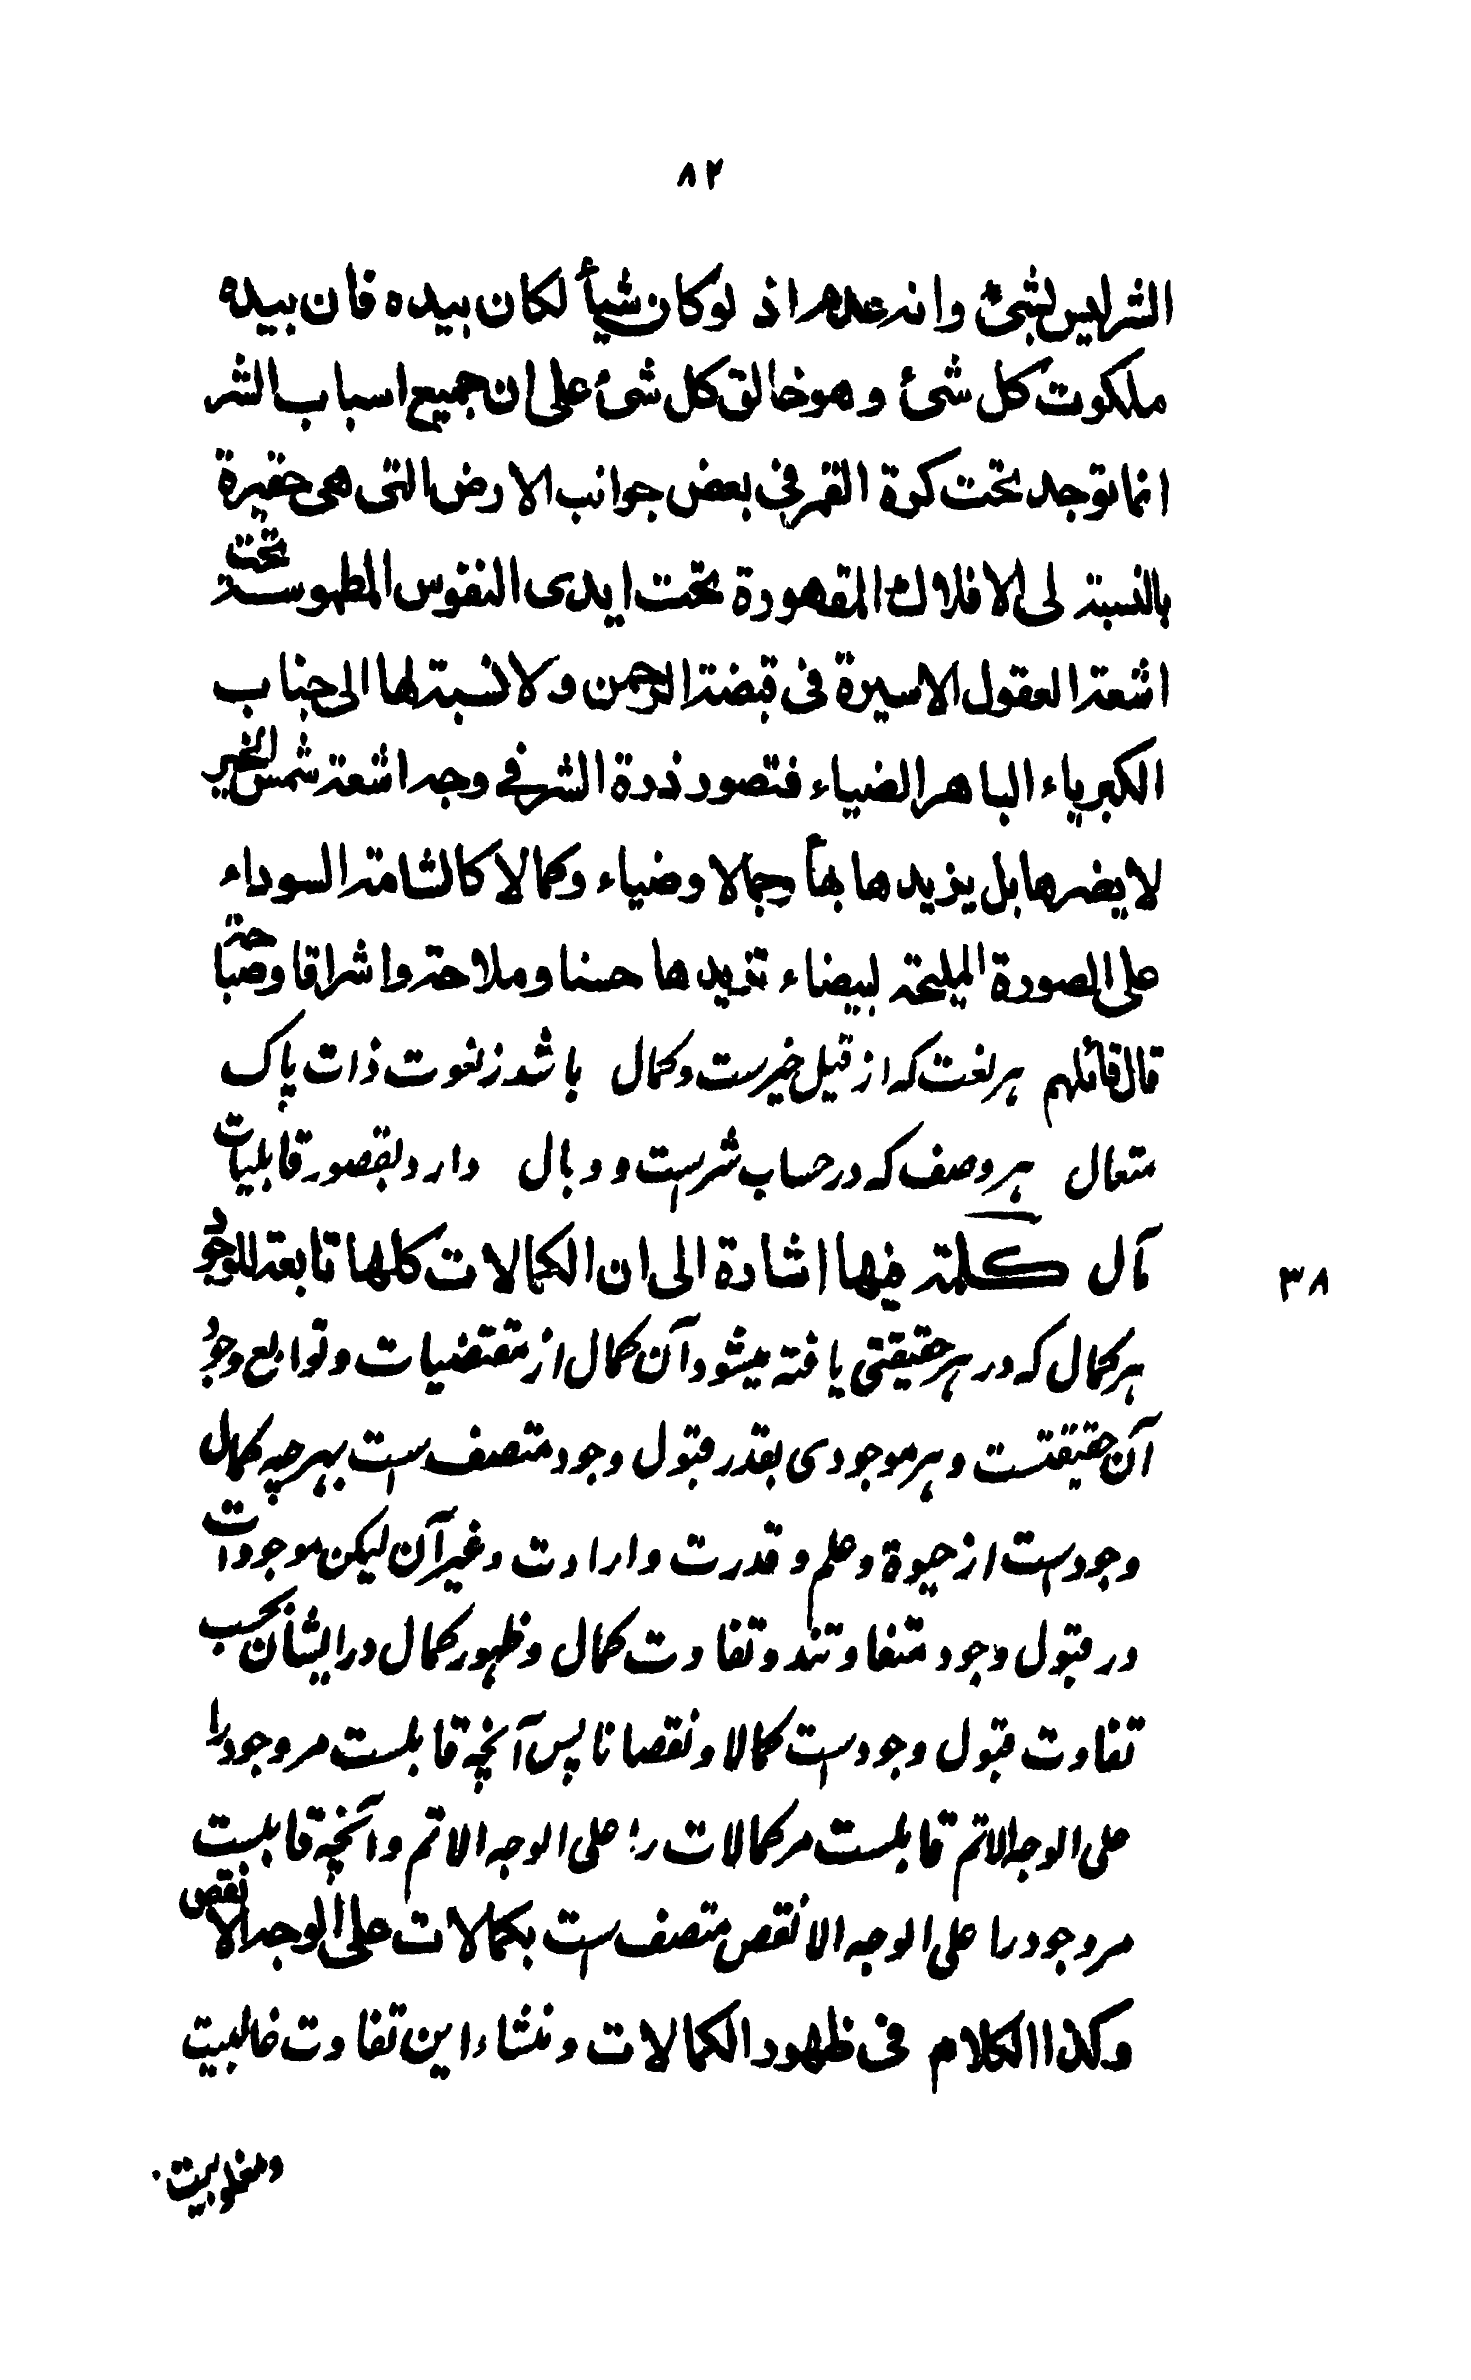 ٨٢
الشر ليس بشئ وانه عدم اذ لو كان شيأ لكان بيده فان بيده
ملكوت كل شئ وهو خالق كل شئ على ان جميع اسباب الشر
انما توجد تحت كرة القمر في بعض جوانب الارض التى هى حقيرة
بالنسبة الى الافلاك المقهورة تحت ايدى النفوس المطموسة تحت
اشعة العقول الاسيرة فى قبضة الرحمن ولا نسبة لها الى جناب
الكبرياء الباهر الضياء فتصور ذرة الشر فى وجه اشعة شمس الخير
لا يضرها بل يزيدها بهأ وجمالا وضياء وكمالا كالشامة السوداء
على الصورة المليحة البيضاء تزيدها حسنا وملاحة واشراقا وصباحة
قال قائلهم هر نعت كه از قبيل خيرست وكمال باشد ز نعوت ذات پاك
متعال هر وصف كه در حساب شرست ووبال دارد بقصور قابليات
مآل كلمة فيها اشارة الى ان الكمالات كلها تابعة للوجود
٣٨
هر كمال كه در هر حقيقتى يافته ميشود آن كمال از مقتضيات وتوابع وجود
آن حقيقتست وهر موجودى بقدر قبول وجود متصف ست بهرچه كمال
وجودست از حيوة وعلم وقدرت وارادت وغير آن ليكن موجودات
در قبول وجود متفاوتند وتفاوت كمال وظهور كمال در ايشان بحسب
تفاوت قبول وجودست كمالا ونقصانا پس آنچه قابلست مر وجود را
على الوجه الاتم قابلست مر كمالات را على الوجه الاتم وآنچه قابلست
مر وجود را على الوجه الانقص متصف ست بكمالات على الوجه الانقص
وكذا الكلام فى ظهور الكمالات ومنشاء اين تفاوت غالبيت
ومغلوبيت